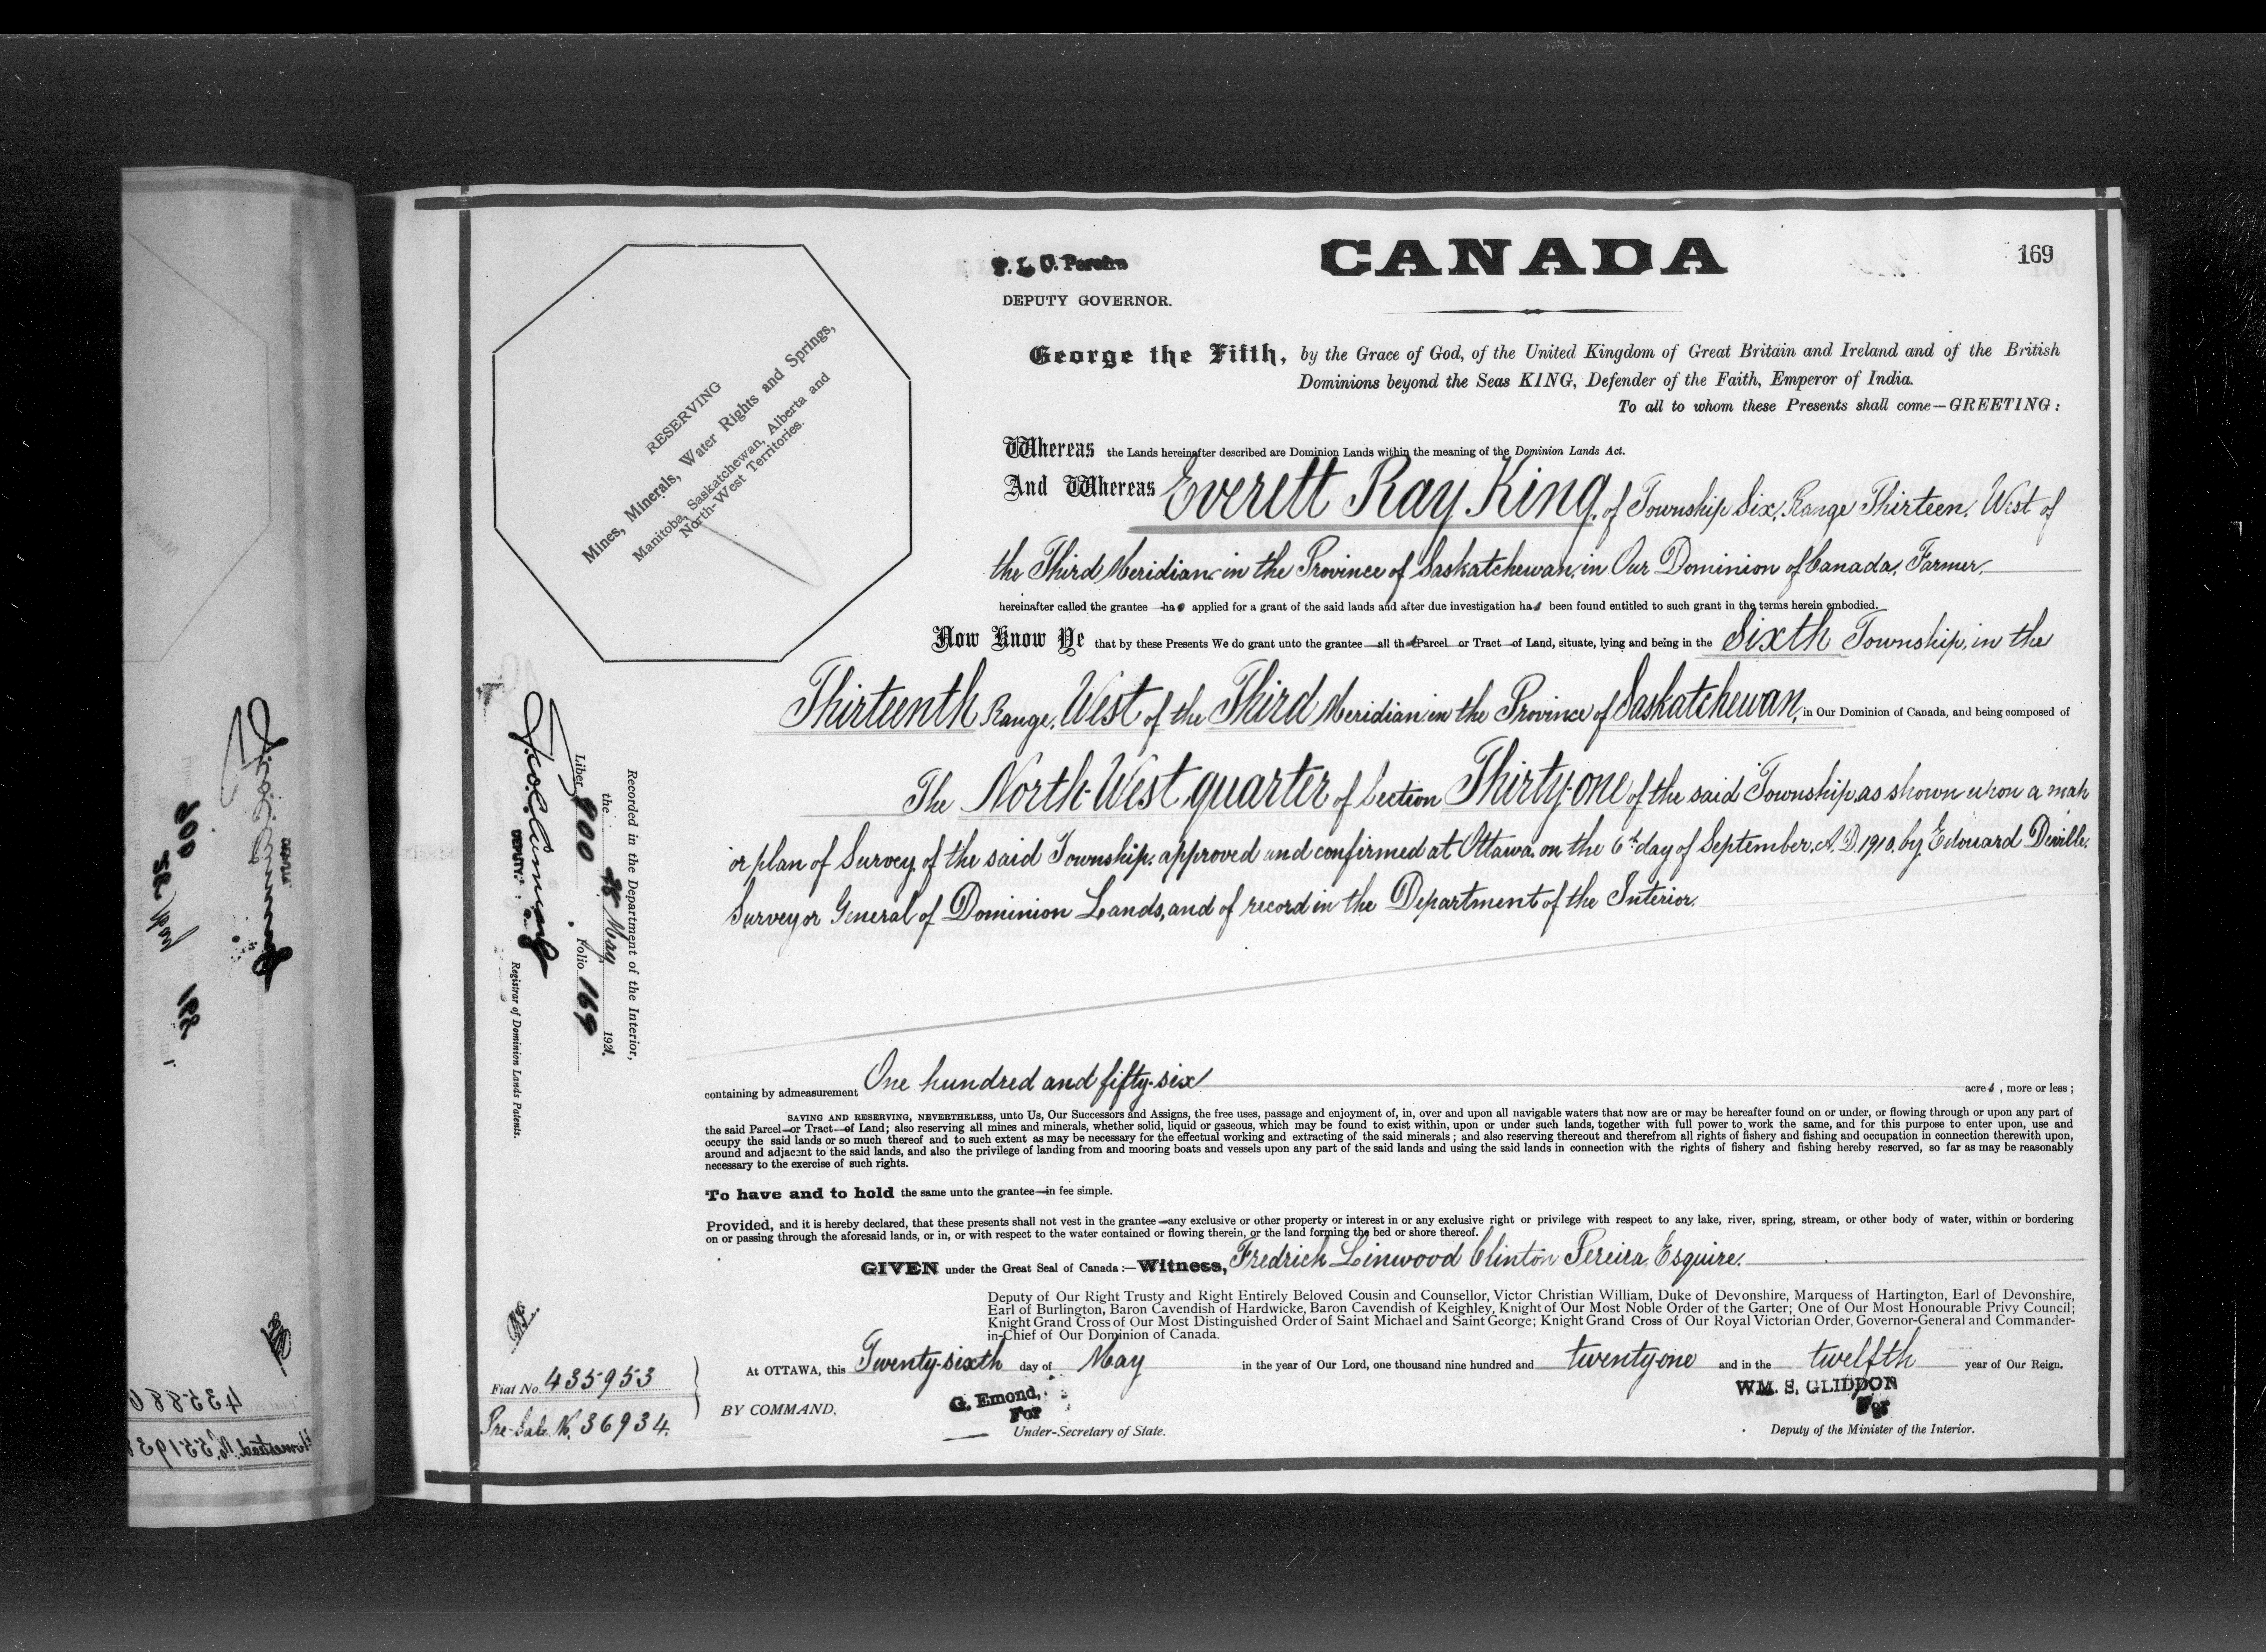 CANADA
169
P. L. C. Pereira
DEPUTY GOVERNOR.
RESERVING
Mines, Minerals, Water Rights and Springs,
Manitoba, Saskatchewan, Alberta and
North-West Territories.
George the Fifth, by the Grace of God, of the United Kingdom of Great Britain and Ireland and of the British
Dominions beyond the Seas KING, Defender of the Faith, Emperor of India.
To all to whom these Presents shall come—GREETING:
Whereas the Lands hereinafter described are Dominion Lands within the meaning of the Dominion Lands Act.
And Whereas Everett Ray King, of Township Six, Range Thirteen, West of
the Third Meridian, in the Province of Saskatchewan, in Our Dominion of Canada, Farmer,
hereinafter called the grantee—has applied for a grant of the said lands and after due investigation has been found entitled to such grant in the terms herein embodied.
Now Know Ye that by these Presents We do grant unto the grantee—all that Parcel or Tract—of Land, situate, lying and being in the Sixth Township, in the
Thirteenth Range, West of the Third Meridian in the Province of Saskatchewan, in Our Dominion of Canada, and being composed of
The North-West quarter of Section Thirty-one of the said Township, as shown upon a map
or plan of Survey of the said Township, approved and confirmed at Ottawa, on the 6th day of September, A.D. 1910, by Edouard Deville,
Surveyor General of Dominion Lands, and of record in the Department of the Interior.
containing by admeasurement One hundred and fifty-six acres, more or less;
SAVING AND RESERVING, NEVERTHELESS, unto Us, Our Successors and Assigns, the free uses, passage and enjoyment of, in, over and upon all navigable waters that now are or may be hereafter found on or under, or flowing through or upon any part of
the said Parcel—or Tract—of Land; also reserving all mines and minerals, whether solid, liquid or gaseous, which may be found to exist within, upon or under such lands, together with full power to work the same, and for this purpose to enter upon, use and
occupy the said lands or so much thereof and to such extent as may be necessary for the effectual working and extracting of the said minerals; and also reserving thereout and therefrom all rights of fishery and fishing and occupation in connection therewith upon,
around and adjacent to the said lands, and also the privilege of landing from and mooring boats and vessels upon any part of the said lands and using the said lands in connection with the rights of fishery and fishing hereby reserved, so far as may be reasonably
necessary to the exercise of such rights.
To have and to hold the same unto the grantee—in fee simple.
Provided, and it is hereby declared, that these presents shall not vest in the grantee—any exclusive or other property or interest in or any exclusive right or privilege with respect to any lake, river, spring, stream, or other body of water, within or bordering
on or passing through the aforesaid lands, or in, or with respect to the water contained or flowing therein, or the land forming the bed or shore thereof.
GIVEN under the Great Seal of Canada:—Witness, Fredrich Linwood Clinton Pereira, Esquire.
Deputy of Our Right Trusty and Right Entirely Beloved Cousin and Counsellor, Victor Christian William, Duke of Devonshire, Marquess of Hartington, Earl of Devonshire,
Earl of Burlington, Baron Cavendish of Hardwicke, Baron Cavendish of Keighley, Knight of Our Most Noble Order of the Garter; One of Our Most Honourable Privy Council;
Knight Grand Cross of Our Most Distinguished Order of Saint Michael and Saint George; Knight Grand Cross of Our Royal Victorian Order, Governor-General and Commander-
in-Chief of Our Dominion of Canada.
At OTTAWA, this Twenty-sixth day of May in the year of Our Lord, one thousand nine hundred and twenty-one and in the twelfth year of Our Reign.
BY COMMAND,
G. Emond,
For
Under-Secretary of State.
WM. S. GLIDDON
For
Deputy of the Minister of the Interior.
Recorded in the Department of the Interior,
the 28 May 1921.
Liber 800 Folio 169
DEPUTY
Registrar of Dominion Lands Patents.
Fiat No. 435953
Pre-Sale No. 36934.